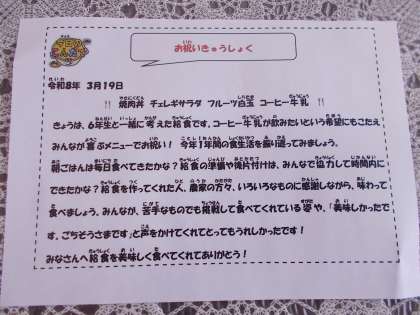 お祝いきゅうしょく
令和8年 3月19日
!! 焼肉丼 チョレギサラダ フルーツ白玉 コーヒー牛乳 !!
きょうは、6年生と一緒に考えた給食です。コーヒー牛乳が飲みたいという希望にもこたえ
みんなが喜ぶメニューでお祝い! 今年1年間の食生活を振り返ってみましょう。
朝ごはんは毎日食べてきたかな?給食の準備や後片付けは、みんなで協力して時間内に
できたかな?給食を作ってくれた人、農家の方々、いろいろなものに感謝しながら、味わって
食べましょう。みんなが、苦手なものでも挑戦して食べてくれている姿や、「美味しかったで
す。ごちそうさまです」と声をかけてくれてとってもうれしかったです!
みなさんへ給食を美味しく食べてくれてありがとう!